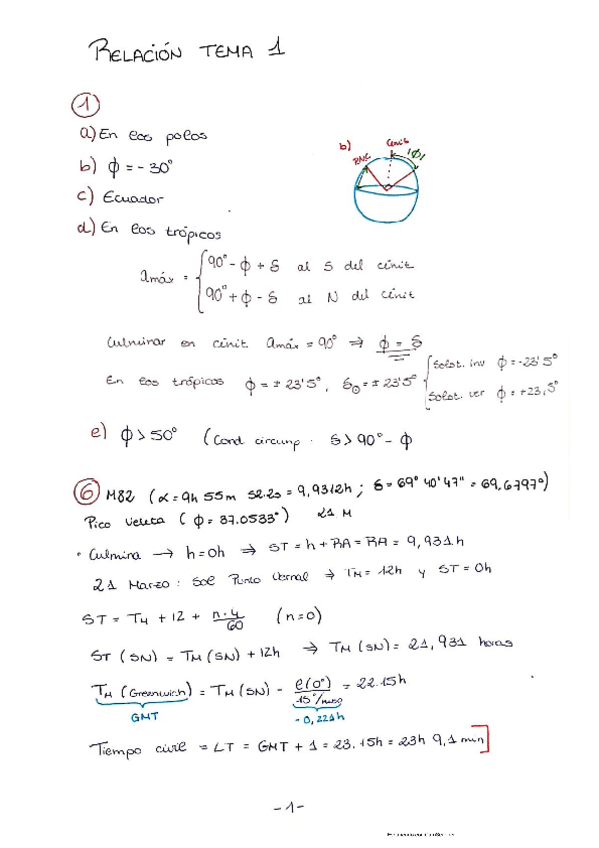 RELACIÓN TEMA 1
1
a) En los polos
b) ϕ = -30°
c) Ecuador
d) En los trópicos
b) PNC Cénit |ϕ|
amáx = { 90° - ϕ + δ al S del cénit
90° + ϕ - δ al N del cénit
Culminar en cénit amáx = 90° ⇒ ϕ = δ
En los trópicos ϕ = ± 23'5°, δ⊙ = ± 23'5° { Solst. inv ϕ = -23'5°
Solst. ver ϕ = +23,5°
e) ϕ > 50° (Cond circump. δ > 90° - ϕ
6 M82 (α = 9h 55m 52.2s = 9,9312h ; δ = 69° 40' 47" = 69,6797°)
Pico Veleta (ϕ = 37.0533°) 21 M
· Culmina → h = 0h ⇒ ST = h + RA = RA = 9,931h
21 Marzo : Sol Punto Vernal ⇒ TM = 12h y ST = 0h
ST = TM + 12 + n·4/60 (n=0)
ST (SN) = TM (SN) + 12h ⇒ TM (SN) = 21,931 horas
TM (Greenwich) = TM (SN) - ℓ(0°)/15°/huso = 22.15h
GMT -0,221h
Tiempo civil = LT = GMT + 1 = 23.15h = 23h 9,1 min
-1-